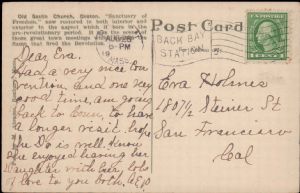 Old South Church, Boston. "Sanctuary of
Freedom," now restored to both interior and
exterior to the aspect which it bore in the
pre-revolutionary period. It is the scene of
some great town meetings
that fired the Revolution.
Post Card
BACK BAY
STATION
PM
MASS
Dear Eva.
Had a very nice con
vention, and one
am going
back to
to have
a longer visit. hope
the Do is well. Know
she enjoyed having her
daughter with her, lots
love to you both,
Eva Holmes
1807½ Steiner St
San Francisco
Cal